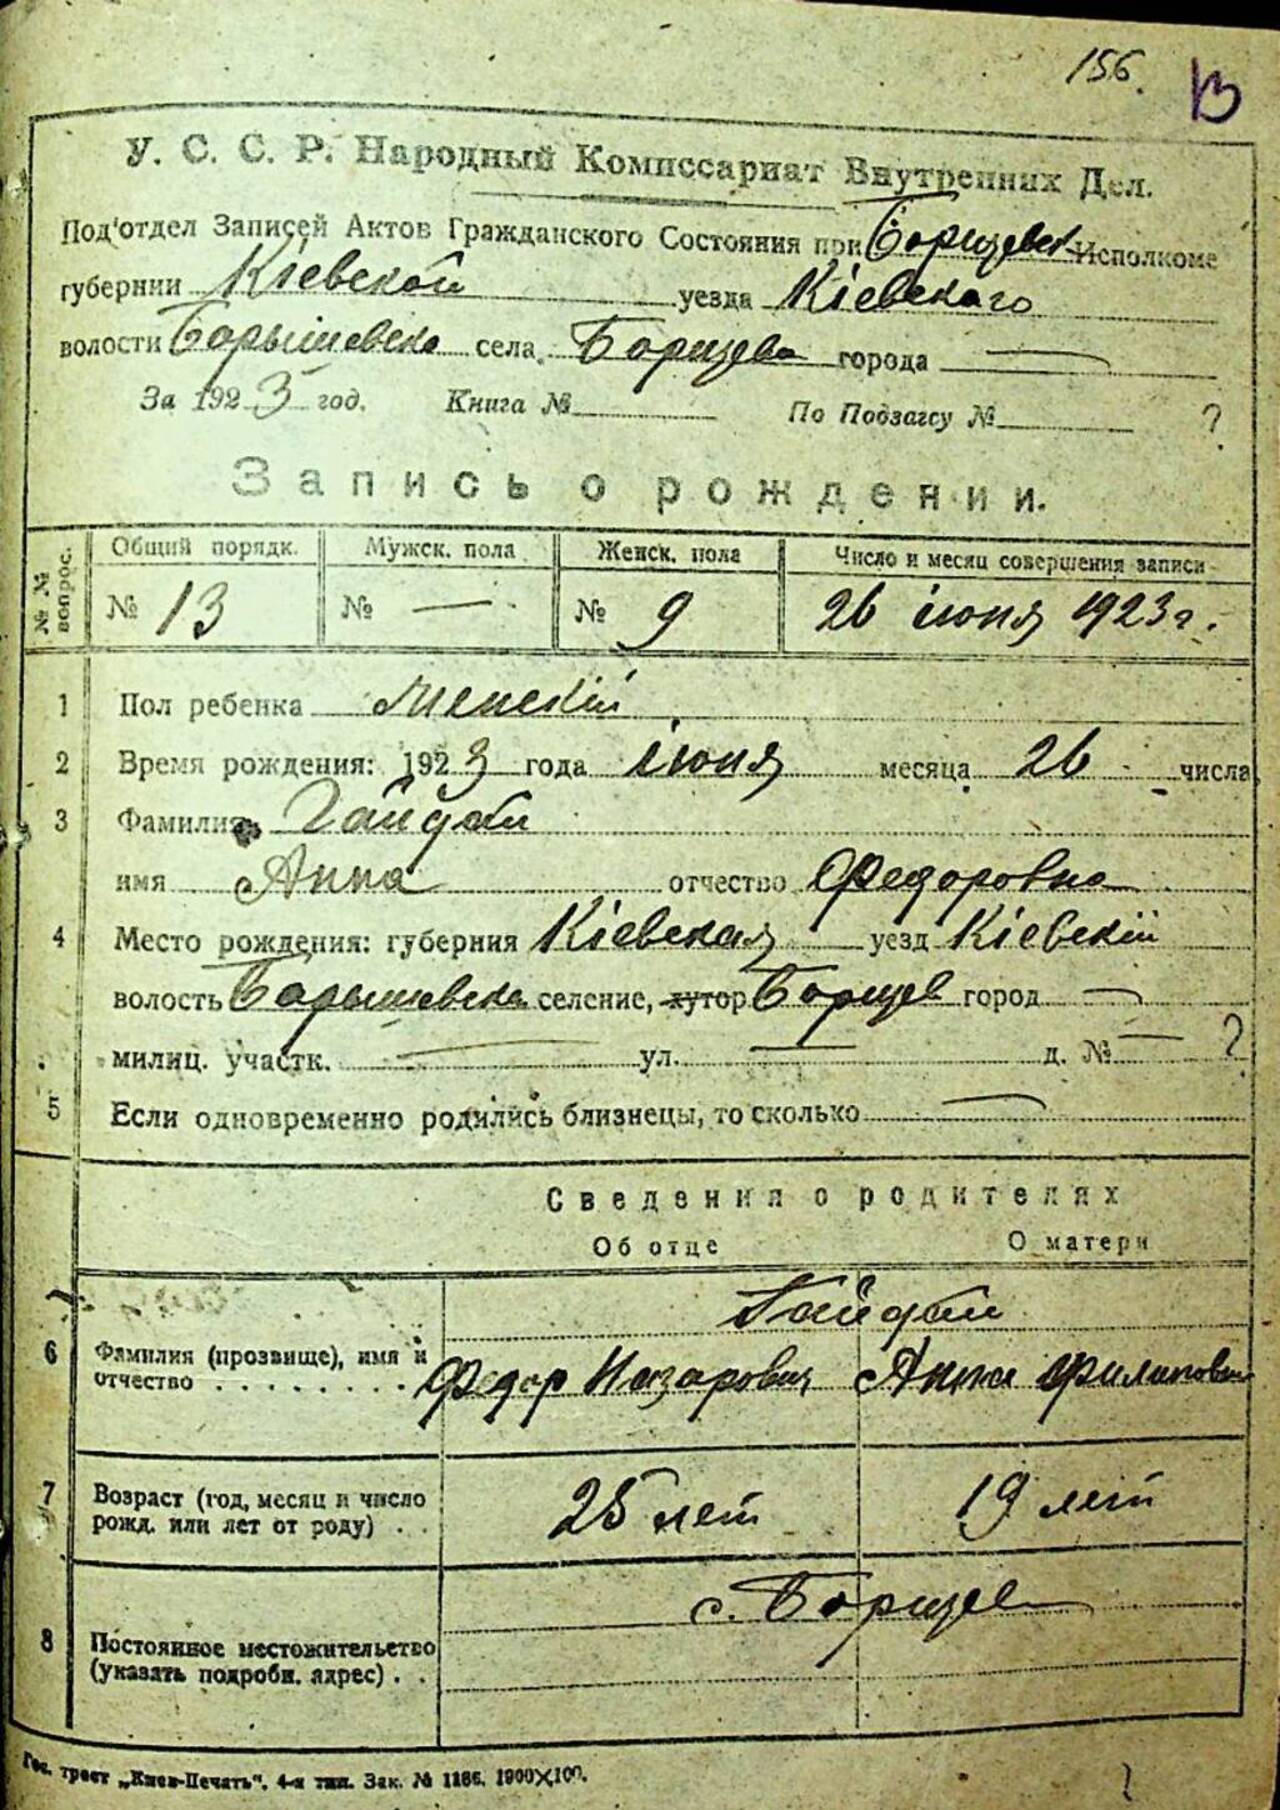 156. 13
У. С. С. Р. Народный Комиссариат Внутренних Дел.
Под'отдел Записей Актов Гражданского Состояния при Борщевск Исполкоме
губернии Кіевской уезда Кіевскаго
волости Барышевска села Борщева города —
За 1923 год. Книга № По Подзагсу № ?
Запись о рождении.
№№ вопрос. Общий порядк. Мужск. пола Женск. пола Число и месяц совершения записи
№ 13 № — № 9 26 июня 1923 г.
1 Пол ребенка Женскій
2 Время рождения: 1923 года июня месяца 26 числа
3 Фамилия Гайдай
имя Анна отчество Федоровна
4 Место рождения: губерния Кіевская уезд Кіевскій
волость Барышевска селение, хутор Борщев город —
милиц. участк. — ул. — д. № — ?
5 Если одновременно родились близнецы, то сколько —
Сведения о родителях
Об отце О матери
Гайдай
6 Фамилия (прозвище), имя и
отчество . . . . . . . . Федор Назарович Анна Филиповна
7 Возраст (год, месяц и число
рожд. или лет от роду) . . 25 лет 19 лет
с. Борщев
8 Постоянное местожительство
(указать подробн. адрес) . .
Гос. трест „Киев-Печать“, 4-я тип. Зак. № 1186. 1900×100.